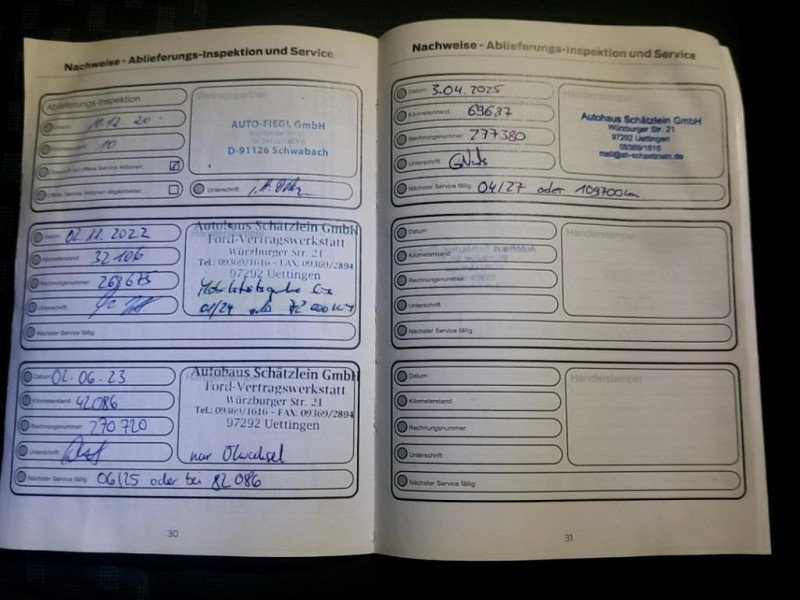 Nachweise - Ablieferungs-Inspektion und Service
Ablieferungs-Inspektion
Datum 11.12 20
10
Überprüft auf offene Service-Aktionen:
Offene Service-Aktionen abgearbeitet:
Vertragspartner
AUTO-FIEGL GmbH
D-91126 Schwabach
Unterschrift:
Datum: 02.11.2022
Kilometerstand: 32106
Rechnungsnummer: 268675
Unterschrift:
Nächster Service fällig:
Autohaus Schätzlein GmbH
Ford-Vertragswerkstatt
Würzburger Str. 21
Tel.: 09369/1616 - FAX: 09369/2894
97292 Uettingen
Datum: 02.06.23
Kilometerstand: 42086
Rechnungsnummer: 270720
Unterschrift:
Autohaus Schätzlein GmbH
Ford-Vertragswerkstatt
Würzburger Str. 21
Tel.: 09369/1616 - FAX: 09369/2894
97292 Uettingen
nur Ölwechsel
Nächster Service fällig: 06/25 oder bei 82 086
30
Nachweise - Ablieferungs-Inspektion und Service
Datum: 3.04.2025
Kilometerstand: 69687
Rechnungsnummer: 277380
Unterschrift:
Händlerstempel
Autohaus Schätzlein GmbH
Würzburger Str. 21
97292 Uettingen
09369/1616
mail@ah-schaetzlein.de
Nächster Service fällig: 04/27 oder 109700km
Datum:
Kilometerstand:
Rechnungsnummer:
Unterschrift:
Händlerstempel
Nächster Service fällig:
Datum:
Kilometerstand:
Rechnungsnummer:
Unterschrift:
Händlerstempel
Nächster Service fällig:
31